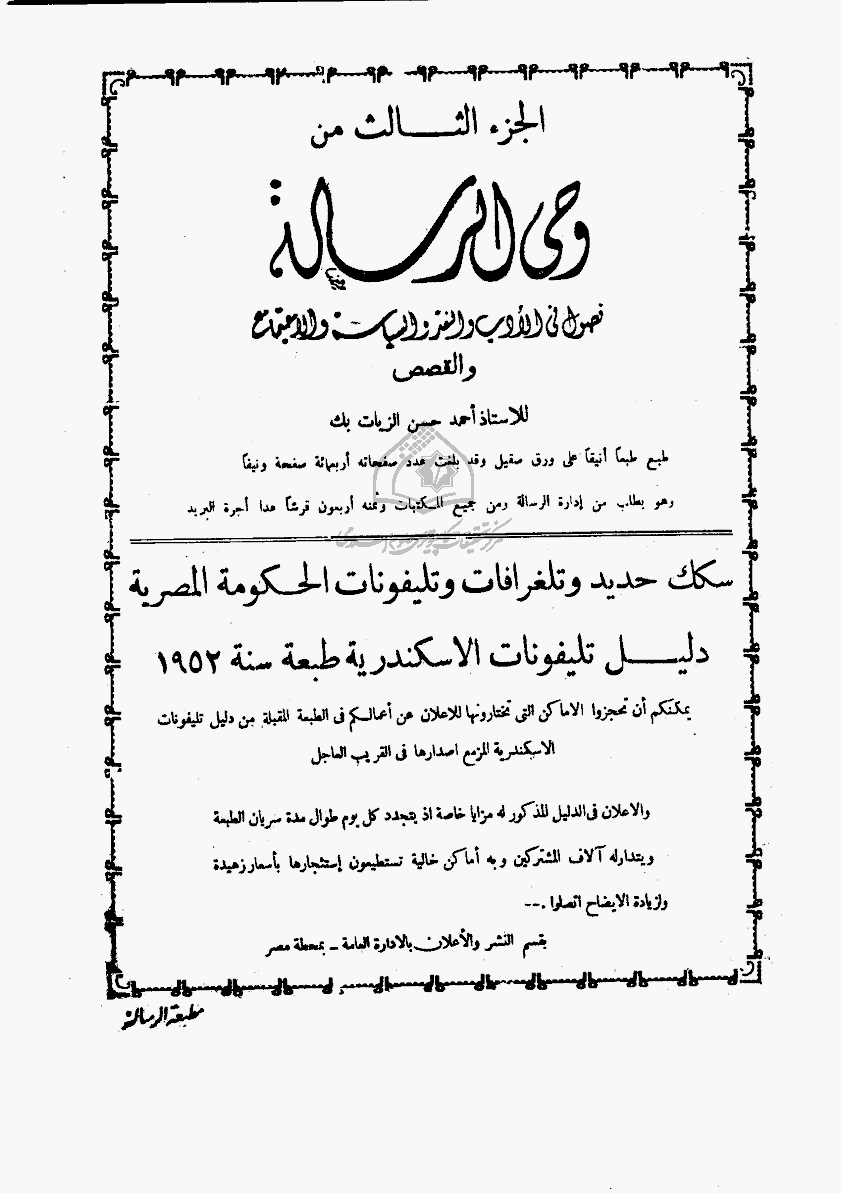 الجزء الثالث من
وحى الرسالة
فصول فى الأدب والنقد والسياسة والاجتماع
والقصص
للاستاذ أحمد حسن الزيات بك
طبع طبعاً أنيقاً على ورق صقيل وقد بلغت عدد صفحاته أربعمائة صفحة ونيفاً
وهو يطلب من إدارة الرسالة ومن جميع المكتبات وثمنه أربعون قرشاً عدا أجرة البريد
سكك حديد وتلغرافات وتليفونات الحكومة المصرية
دليل تليفونات الاسكندرية طبعة سنة ١٩٥٢
يمكنكم أن تحجزوا الاماكن التى تختارونها للاعلان عن أعمالكم فى الطبعة المقبلة من دليل تليفونات
الاسكندرية المزمع اصدارها فى القريب العاجل
والاعلان فى الدليل المذكور له مزايا خاصة اذ يتجدد كل يوم طوال مدة سريان الطبعة
ويتداوله آلاف المشتركين وبه أماكن خالية تستطيعون إستئجارها بأسعار زهيدة
ولزيادة الايضاح اتصلوا .--
بقسم النشر والأعلان بالادارة العامة – بمحطة مصر
مطبعة الرسالة